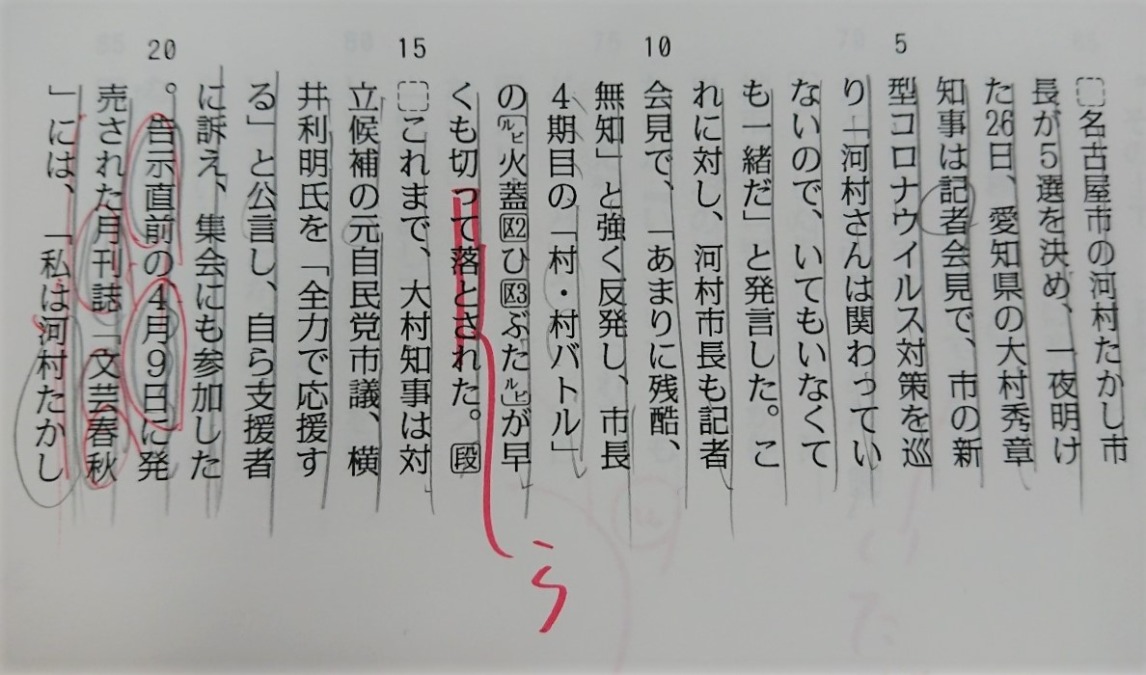 名古屋市の河村たかし市
長が5選を決め、一夜明け
た26日、愛知県の大村秀章
知事は記者会見で、市の新
型コロナウイルス対策を巡
り「河村さんは関わってい
ないので、いてもいなくて
も一緒だ」と発言した。こ
れに対し、河村市長も記者
会見で、「あまりに残酷、
無知」と強く反発し、市長
4期目の「村・村バトル」
の㋸㋪火蓋区2ひ区3ぶたルビが早
くも切って落とされた。段
これまで、大村知事は対
立候補の元自民党市議、横
井利明氏を「全力で応援す
る」と公言し、自ら支援者
に訴え、集会にも参加した
。告示直前の4月9日に発
売された月刊誌「文芸春秋
」には、「私は河村たかし
5
10
15
20
ら